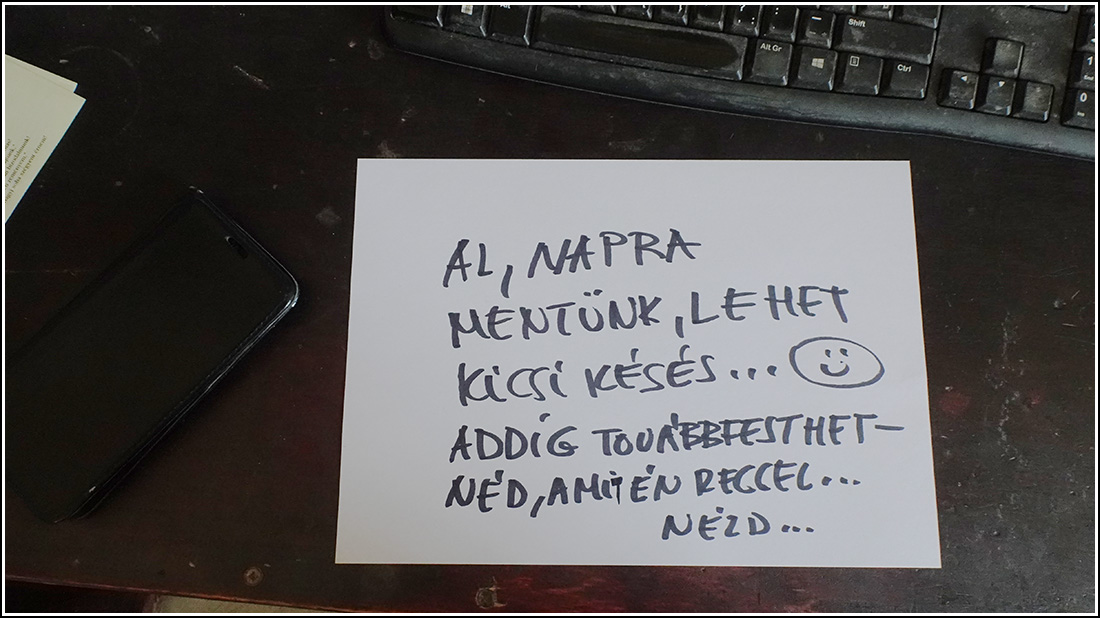 Shift
Alt
Alt Gr
Ctrl
0
AL, NAPRA
MENTÜNK, LEHET
KICSI KÉSÉS...
ADDIG TOVÁBBFESTHET-
NÉD, AMIT ÉN REGGEL...
NÉZD...